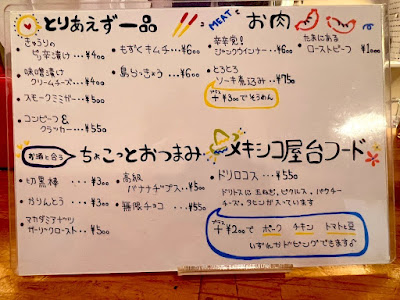 とりあえず一品
きゅうりの
ピリ辛漬け・・・¥400
味噌漬け
クリームチーズ・・・¥400
スモークミミガー・・・¥500
コンビーフ&
クラッカー・・・¥550
もずくキムチ・・・¥600
島らっきょう・・・¥600
MEAT
お肉
辛辛党!
ジャンクウインナー・・・¥600
とろとろ
ソーキ煮込み・・・¥750
プラス
+¥300でそうめん
たまにある
ローストビーフ ¥1000
お酒と合う
ちょこっとおつまみ
・切黒棒・・・¥300
・かりんとう・・・¥300
・マカダミアナッツ
ガーリックロースト・・・¥500
・高級
バナナチップス・・・¥500
・無限チョコ・・・¥550
メキシコ屋台フード
・ドリロコス・・・¥550
ドリトスに玉ねぎ、ピクルス、パクチー
チーズ、タヒンが入っています
プラス
+¥200で ポーク チキン トマトと豆
いずれかトッピングできます♪